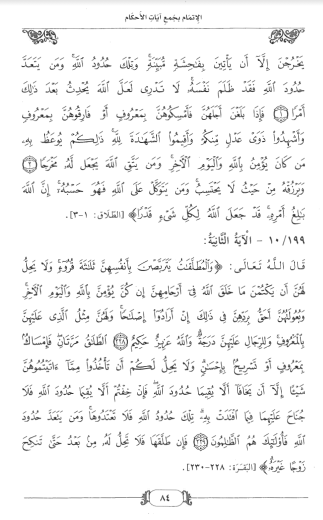 الإتمام بجمع آيات الأحكام
يَخْرُجْنَ إِلَّا أَن يَأْتِينَ بِفَاحِشَةٍ مُّبَيِّنَةٍ وَتِلْكَ حُدُودُ اللَّهِ وَمَن يَتَعَدَّ
حُدُودَ اللَّهِ فَقَدْ ظَلَمَ نَفْسَهُ لَا تَدْرِى لَعَلَّ اللَّهَ يُحْدِثُ بَعْدَ ذَٰلِكَ
أَمْرًا ١ فَإِذَا بَلَغْنَ أَجَلَهُنَّ فَأَمْسِكُوهُنَّ بِمَعْرُوفٍ أَوْ فَارِقُوهُنَّ بِمَعْرُوفٍ
وَأَشْهِدُوا ذَوَىْ عَدْلٍ مِّنكُمْ وَأَقِيمُوا الشَّهَادَةَ لِلَّهِ ذَٰلِكُمْ يُوعَظُ بِهِ
مَن كَانَ يُؤْمِنُ بِاللَّهِ وَالْيَوْمِ الْآخِرِ وَمَن يَتَّقِ اللَّهَ يَجْعَل لَّهُ مَخْرَجًا ٢
وَيَرْزُقْهُ مِنْ حَيْثُ لَا يَحْتَسِبُ وَمَن يَتَوَكَّلْ عَلَى اللَّهِ فَهُوَ حَسْبُهُ إِنَّ اللَّهَ
بَالِغُ أَمْرِهِ قَدْ جَعَلَ اللَّهُ لِكُلِّ شَىْءٍ قَدْرًا﴾ [الطلاق: ١-٣].
١٠/١٩٩ - الآيَةُ الثَّانِيَةُ:
قَالَ اللهُ تَعَالَى: ﴿وَالْمُطَلَّقَاتُ يَتَرَبَّصْنَ بِأَنفُسِهِنَّ ثَلَاثَةَ قُرُوءٍ وَلَا يَحِلُّ
لَهُنَّ أَن يَكْتُمْنَ مَا خَلَقَ اللَّهُ فِى أَرْحَامِهِنَّ إِن كُنَّ يُؤْمِنَّ بِاللَّهِ وَالْيَوْمِ الْآخِرِ
وَبُعُولَتُهُنَّ أَحَقُّ بِرَدِّهِنَّ فِى ذَٰلِكَ إِنْ أَرَادُوا إِصْلَاحًا وَلَهُنَّ مِثْلُ الَّذِى عَلَيْهِنَّ
بِالْمَعْرُوفِ وَلِلرِّجَالِ عَلَيْهِنَّ دَرَجَةٌ وَاللَّهُ عَزِيزٌ حَكِيمٌ ٢٢٨ الطَّلَاقُ مَرَّتَانِ فَإِمْسَاكٌ
بِمَعْرُوفٍ أَوْ تَسْرِيحٌ بِإِحْسَانٍ وَلَا يَحِلُّ لَكُمْ أَن تَأْخُذُوا مِمَّا ءَاتَيْتُمُوهُنَّ
شَيْئًا إِلَّا أَن يَخَافَا أَلَّا يُقِيمَا حُدُودَ اللَّهِ فَإِنْ خِفْتُمْ أَلَّا يُقِيمَا حُدُودَ اللَّهِ فَلَا
جُنَاحَ عَلَيْهِمَا فِيمَا افْتَدَتْ بِهِ تِلْكَ حُدُودُ اللَّهِ فَلَا تَعْتَدُوهَا وَمَن يَتَعَدَّ حُدُودَ
اللَّهِ فَأُولَٰئِكَ هُمُ الظَّالِمُونَ ٢٢٩ فَإِن طَلَّقَهَا فَلَا تَحِلُّ لَهُ مِن بَعْدُ حَتَّىٰ تَنكِحَ
زَوْجًا غَيْرَهُ﴾ [البقرة: ٢٢٨-٢٣٠].
٨٤